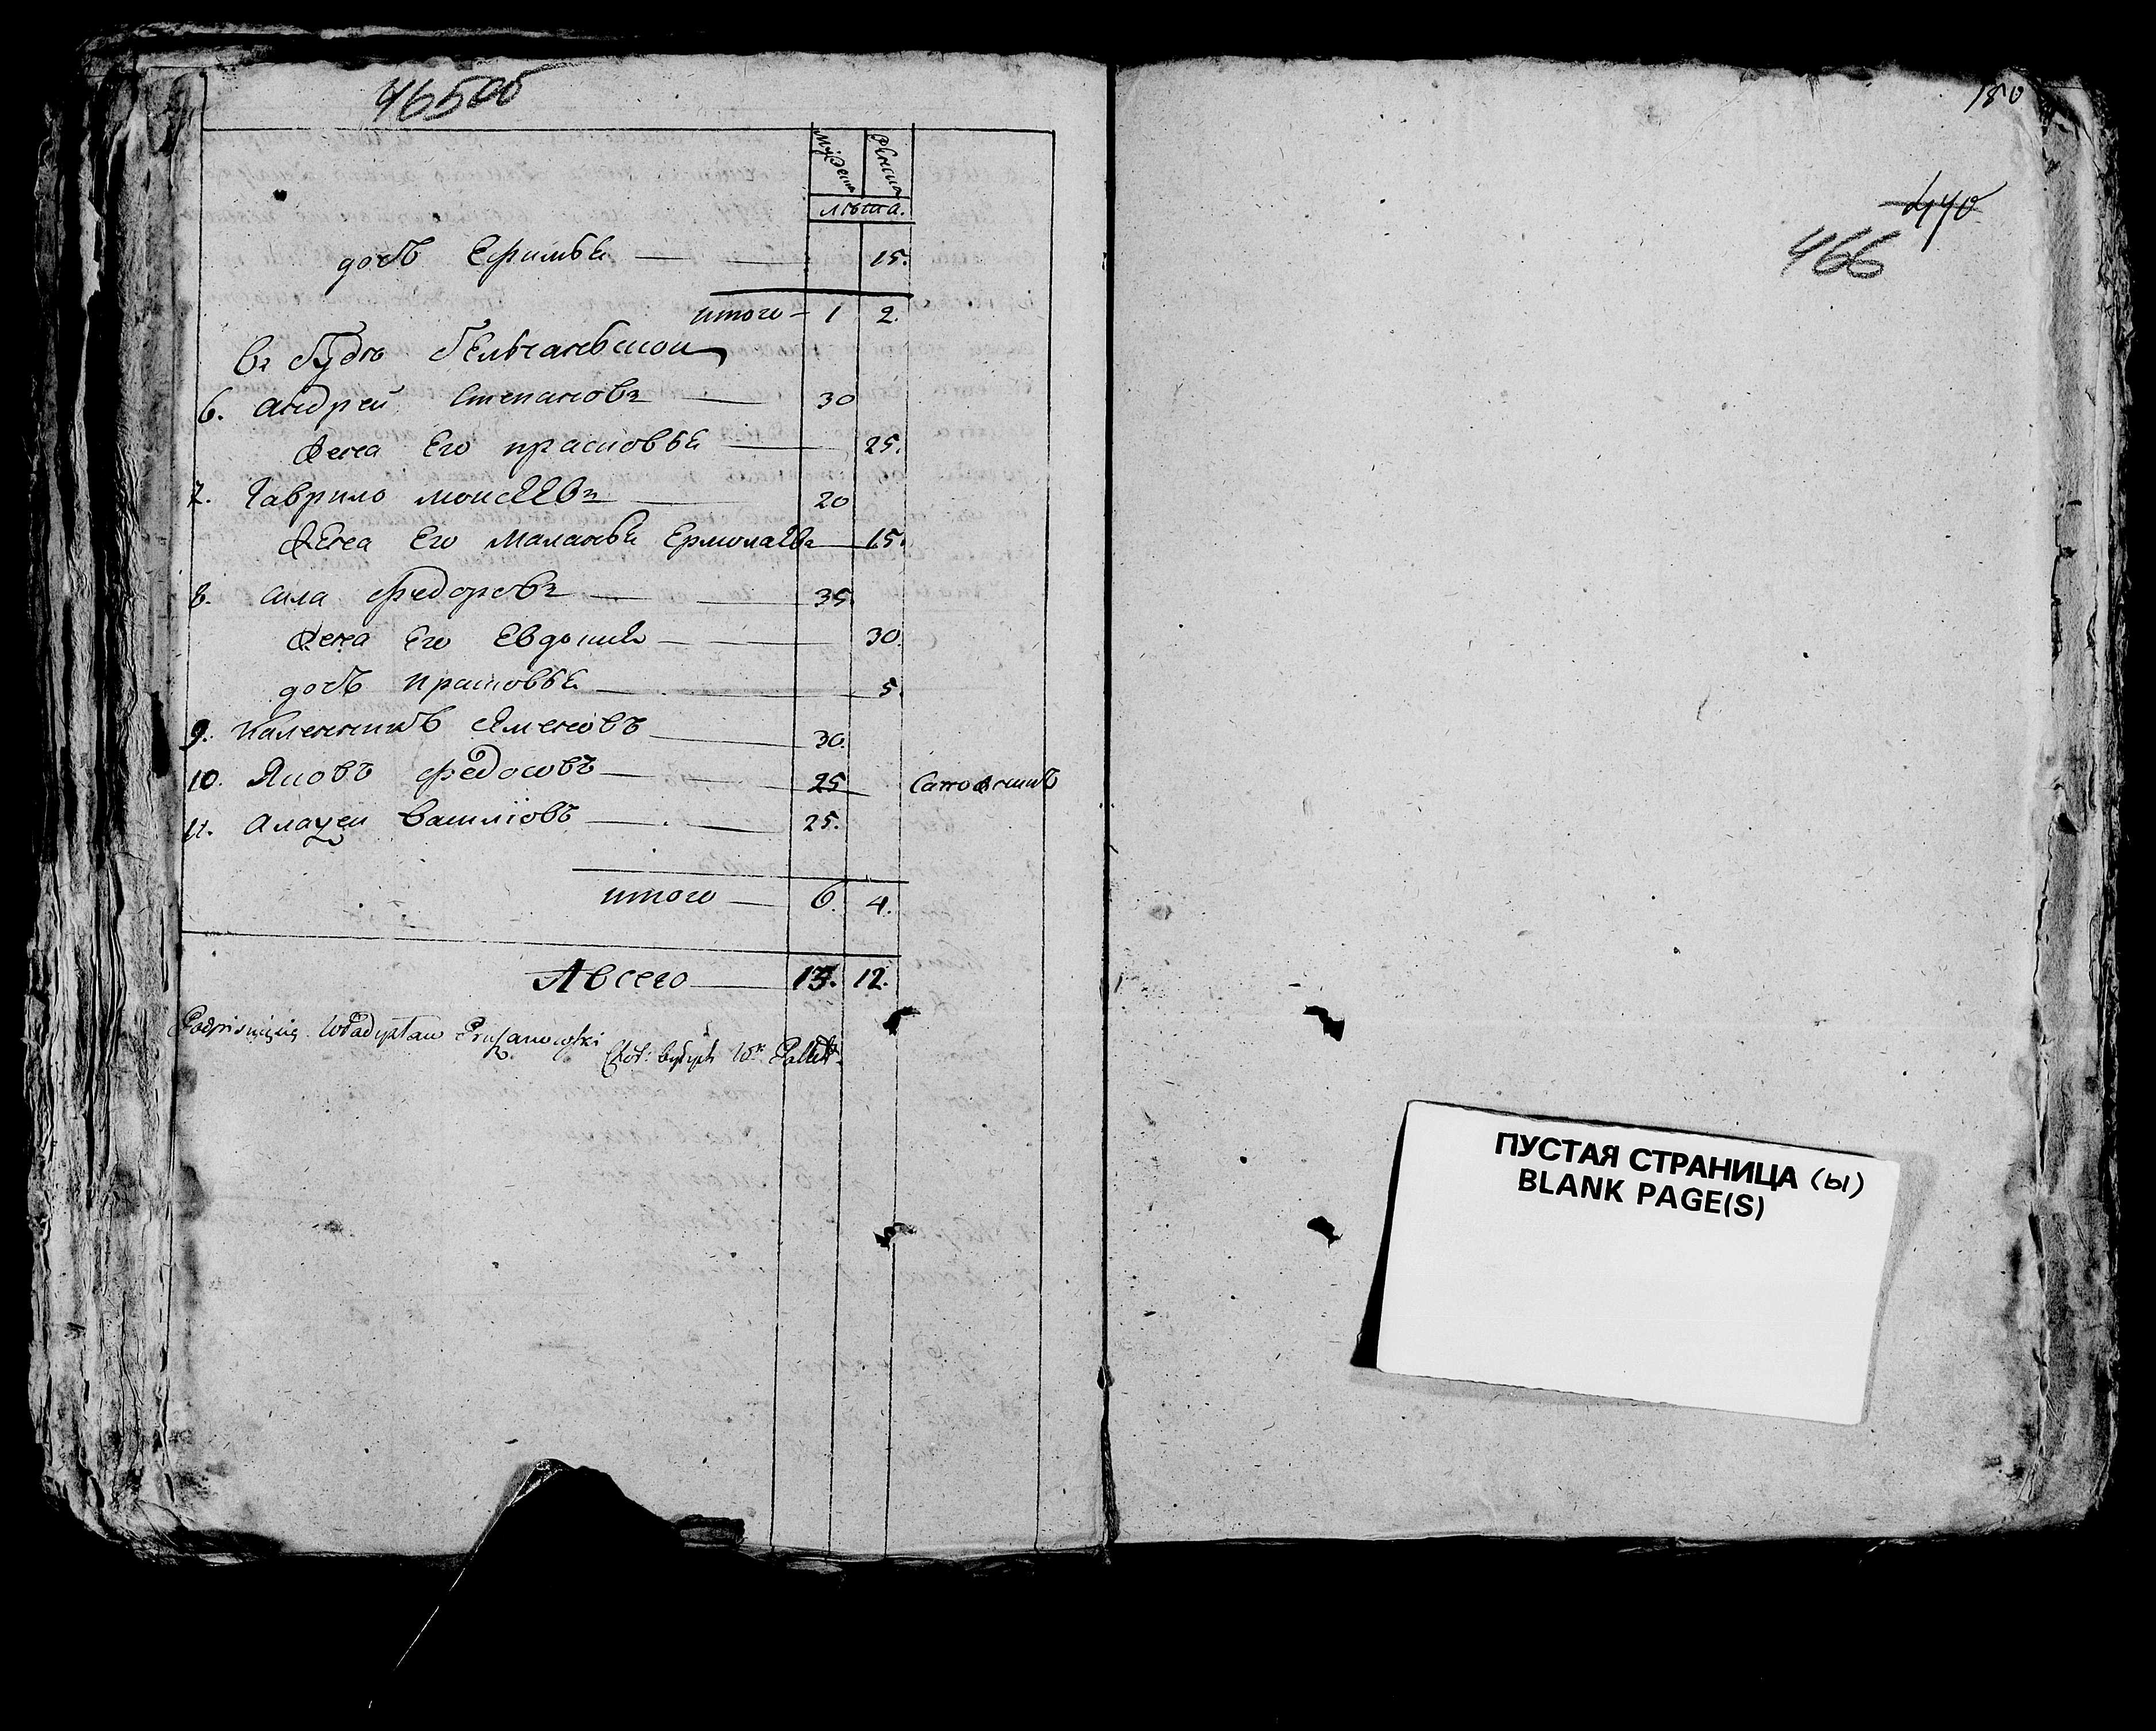 465об
мужеска женска
лѣта.
дочь Ефимья 15.
итого 1 2.
Въ Будѣ
6. андрей Степановъ 30
жена Его прасковья 25.
7. Гаврило моисеевъ 20
жена Его Маланья Ермолаева 15.
8. сила федоровъ 35.
жена Его Евдокия 30.
дочь прасковья 5.
9. Калентикъ 30.
10. Яковъ федосовъ 25
11. Алаѯеи Васильовъ 25.
итого 6. 4.
А всего 13. 12.
Władysław Pruszanowski
180
440
466
ПУСТАЯ СТРАНИЦА (Ы)
BLANK PAGE(S)